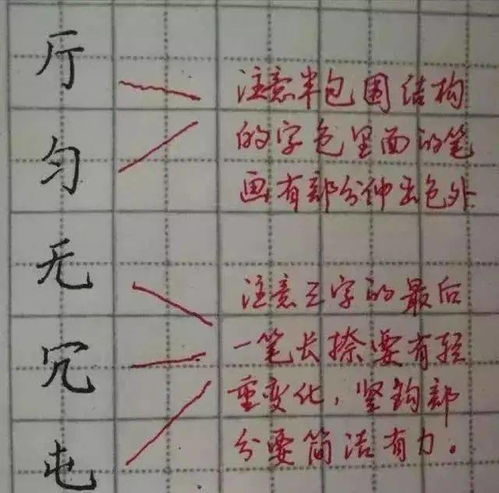 厅
匀
无
冗
屯
注意半包围结构
的字包里面的笔
画有部分伸出包外
注意三字的最后
一笔长捺要有轻
重变化，竖钩部
分要简洁有力。